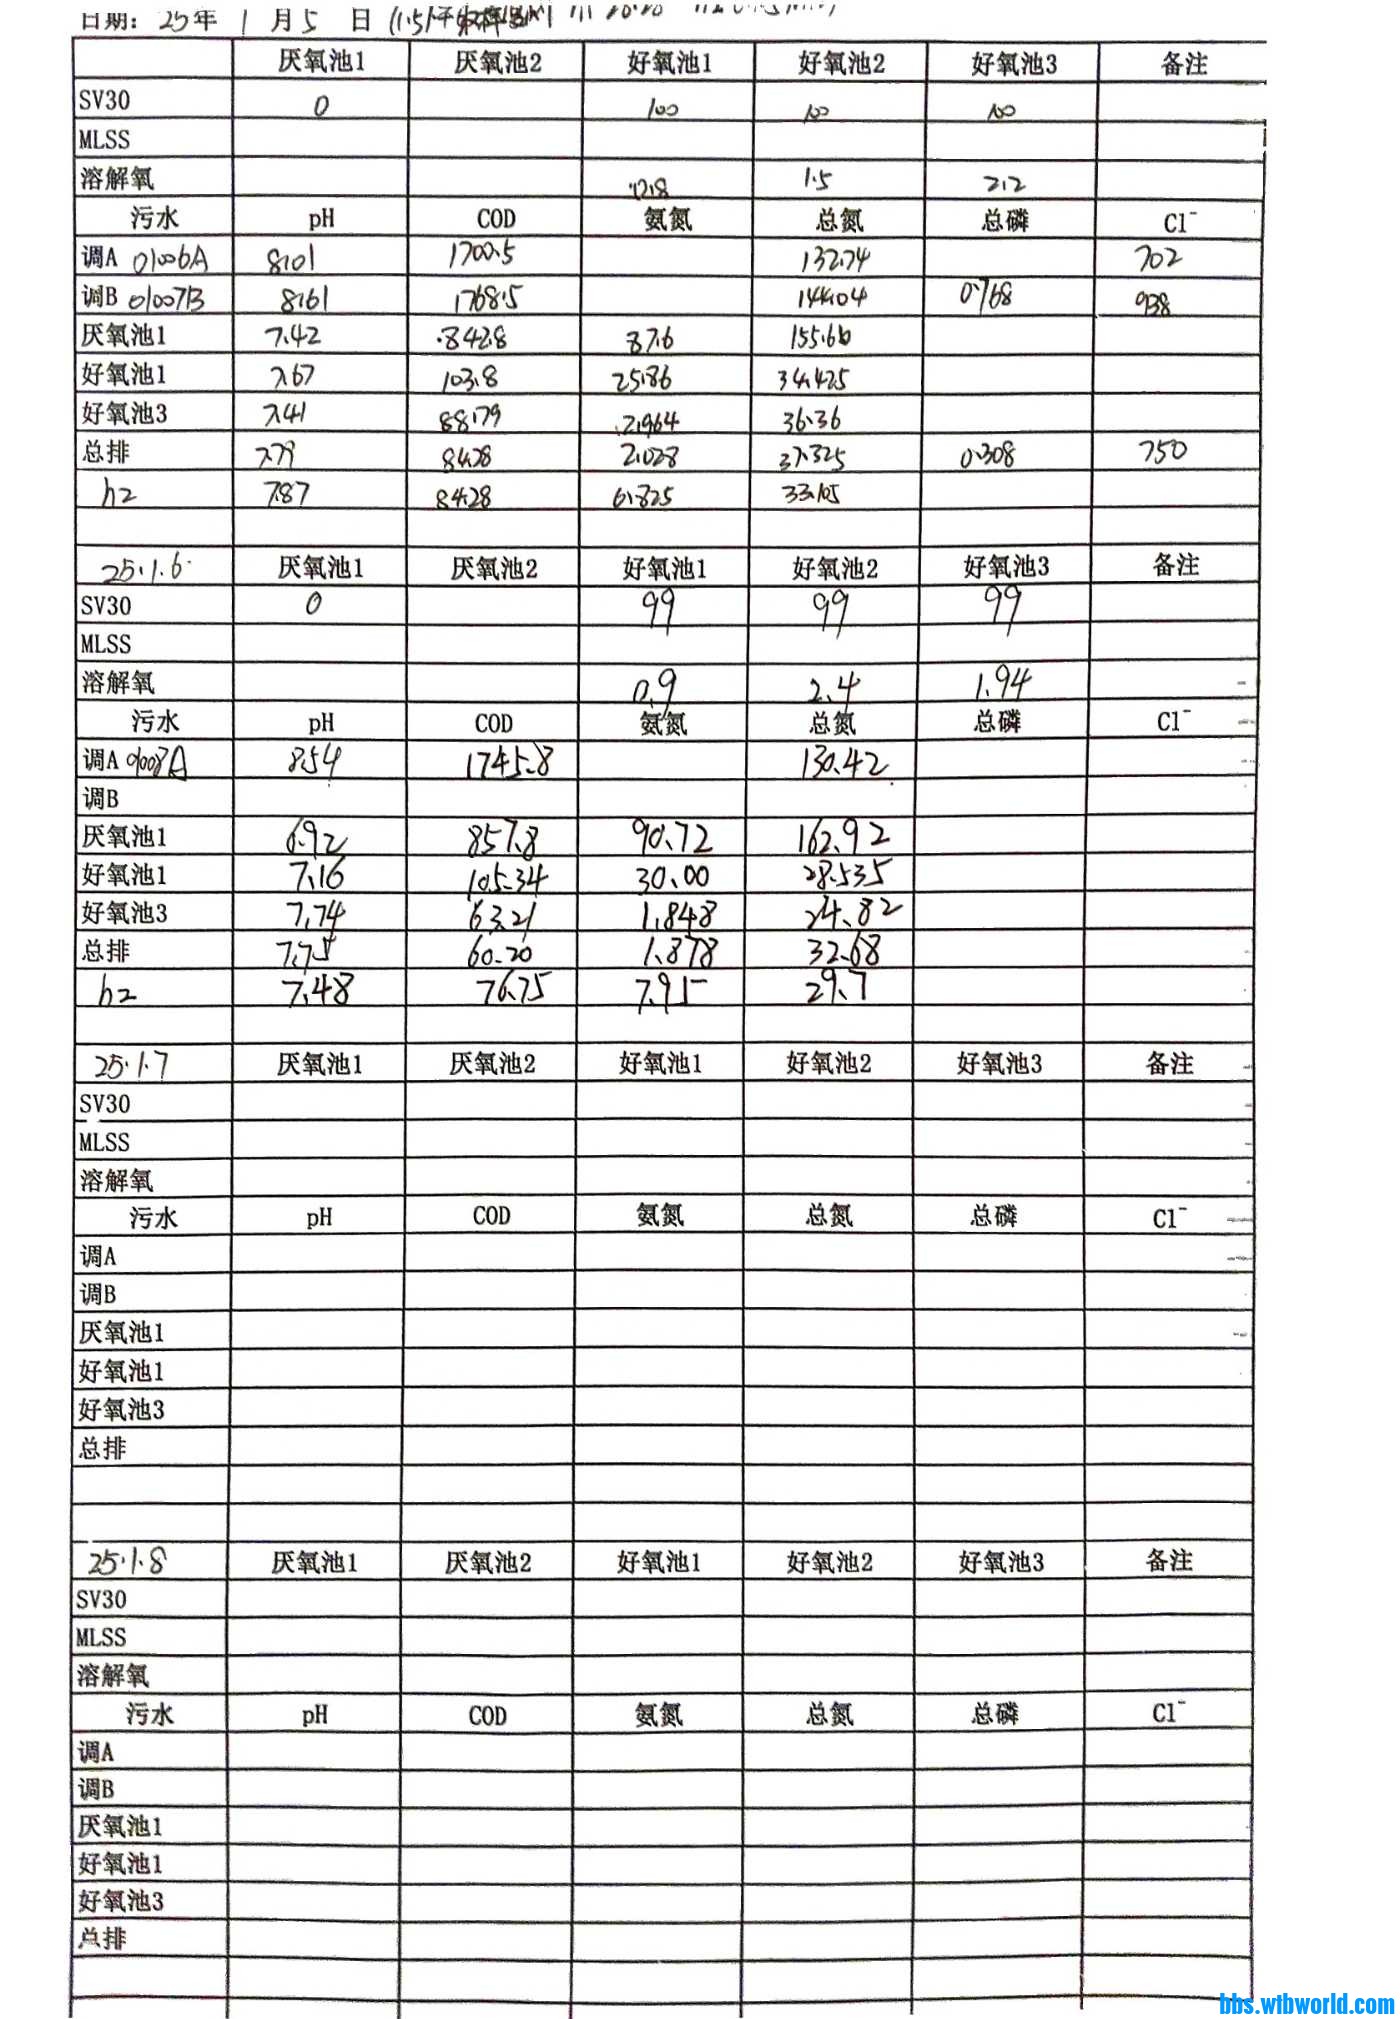 日期: 25年 1 月 5 日
厌氧池1 厌氧池2 好氧池1 好氧池2 好氧池3 备注
SV30 0 100 100 100
MLSS
溶解氧 0.8 1.5 2.2
污水 pH COD 氨氮 总氮 总磷 Cl⁻
调A 01006A 8.01 1700.5 132.74 702
调B 01007B 8.61 1768.5 144.04 0.768 938
厌氧池1 7.42 842.8 87.6 155.66
好氧池1 7.67 103.8 25.86 34.425
好氧池3 7.41 88.179 2.964 36.36
总排 7.79 84.28 2.028 37.325 0.308 750
h2 7.87 84.28 6.825 33.105
25.1.6 厌氧池1 厌氧池2 好氧池1 好氧池2 好氧池3 备注
SV30 0 99 99 99
MLSS
溶解氧 0.9 2.4 1.94
污水 pH COD 氨氮 总氮 总磷 Cl⁻
调A 01008A 8.54 1745.8 130.42
调B
厌氧池1 6.92 857.8 90.72 162.92
好氧池1 7.16 105.34 30.00 28.535
好氧池3 7.74 63.21 1.848 24.82
总排 7.75 60.20 1.878 32.68
h2 7.48 76.75 7.95 29.7
25.1.7 厌氧池1 厌氧池2 好氧池1 好氧池2 好氧池3 备注
SV30
MLSS
溶解氧
污水 pH COD 氨氮 总氮 总磷 Cl⁻
调A
调B
厌氧池1
好氧池1
好氧池3
总排
25.1.8 厌氧池1 厌氧池2 好氧池1 好氧池2 好氧池3 备注
SV30
MLSS
溶解氧
污水 pH COD 氨氮 总氮 总磷 Cl⁻
调A
调B
厌氧池1
好氧池1
好氧池3
总排
bbs.wibworld.com